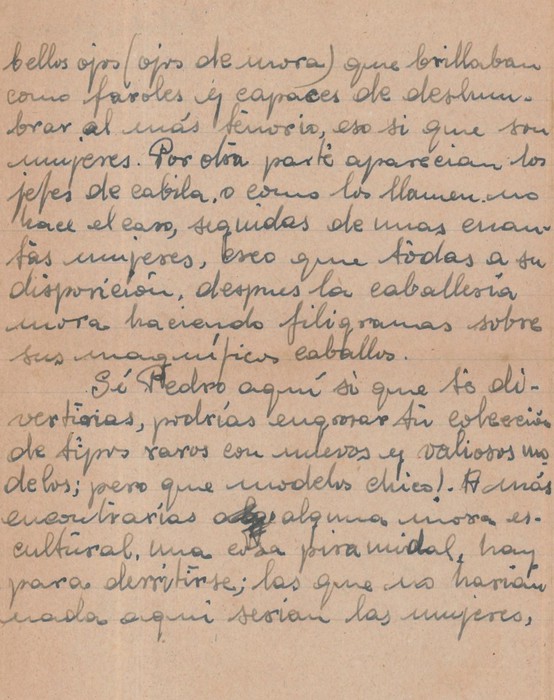 bellos ojos (ojos de mora) que brillaban
como faroles y capaces de deslum-
brar al más tenorio, eso si que son
mujeres. Por otra parte aparecian los
jefes de cabila, o como los llamen, no
hace el caso, seguidas de unas cuan-
tas mujeres, creo que todas a su
disposición, despues la caballeria
mora haciendo filigramas sobre
sus magníficos caballos.
Sí Pedro aquí si que te di-
vertirias, podrías engrosar tu colección
de tipos raros con nuevos y valiosos mo
delos; pero que modelos chico!. A más
encontrarías alguna mora es-
cultural, una cosa piramidal, hay
para derritirse; las que no harian
nada aqui serian las mujeres,